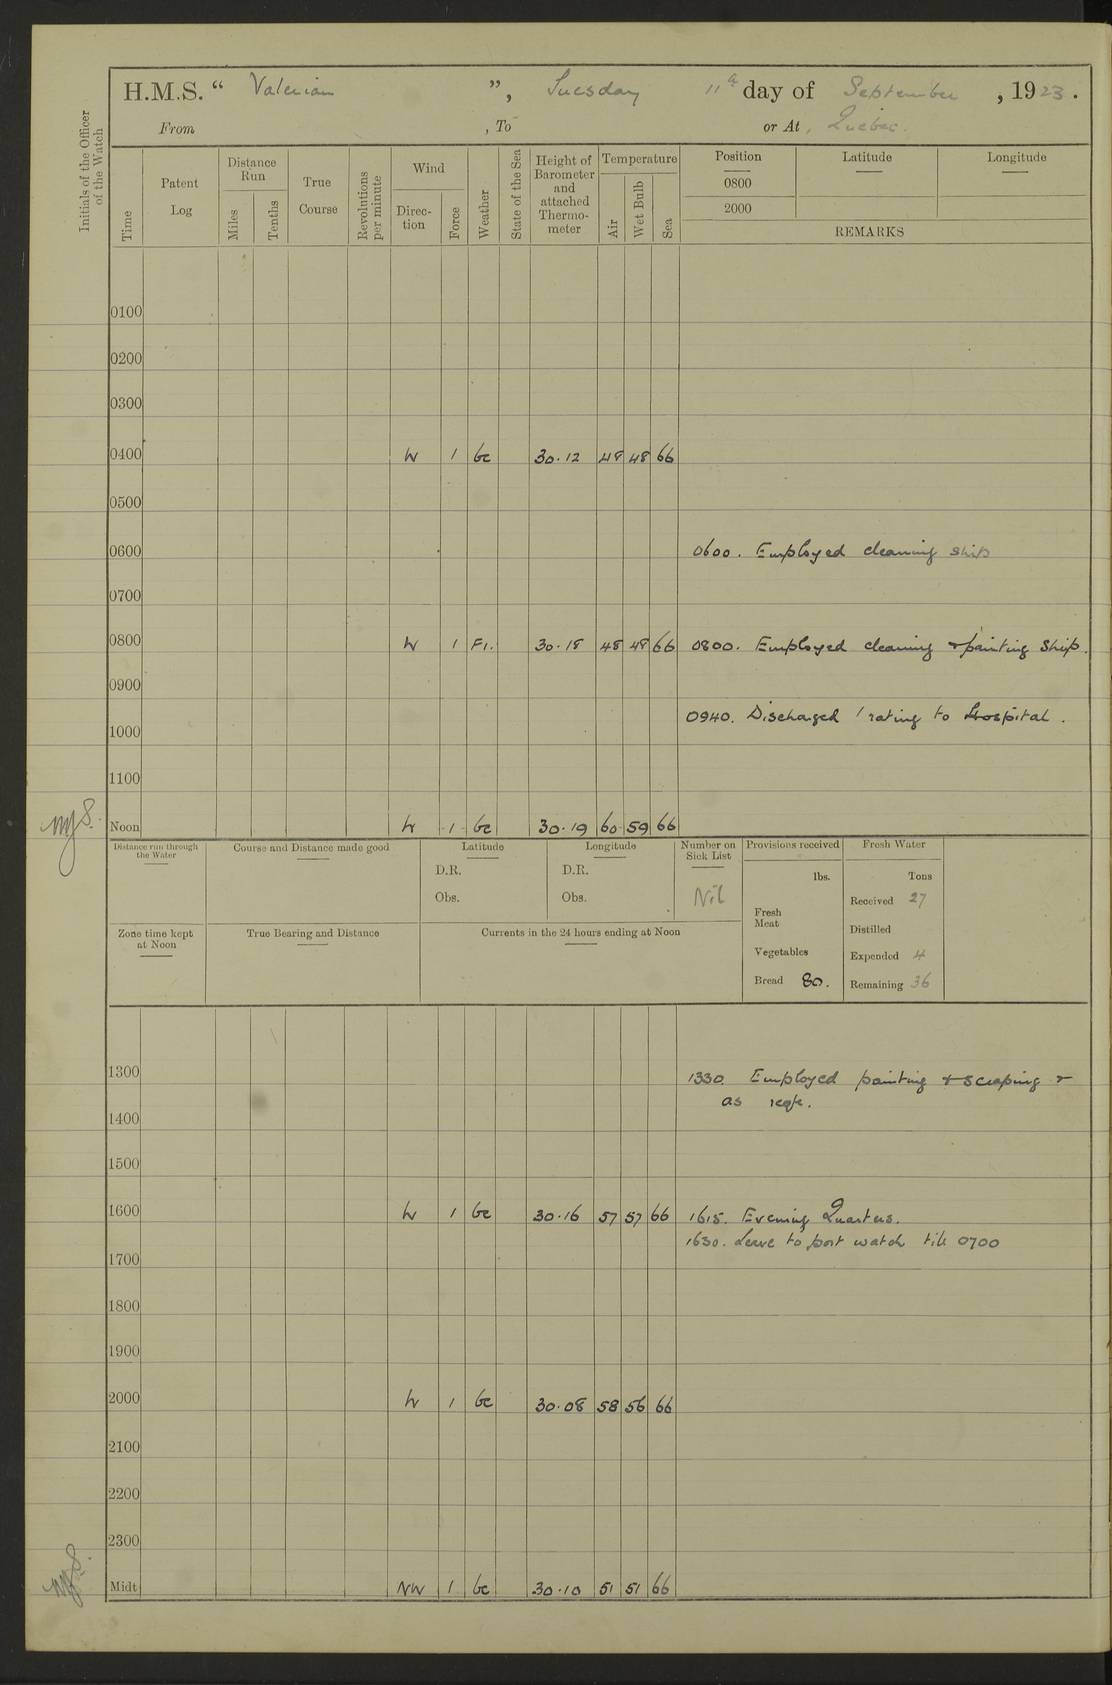 H.M.S. “ Valerian ”, Tuesday 11th day of September, 1923.
From , To or At, Quebec.
Initials of the Officer of the Watch
Time
Patent Log
Distance Run
Miles
Tenths
True Course
Revolutions per minute
Wind
Direction
Force
Weather
State of the Sea
Height of Barometer and attached Thermometer
Temperature
Air
Wet Bulb
Sea
Position
0800
2000
Latitude
Longitude
REMARKS
0100
0200
0300
0400 W 1 bc 30.12 48 48 66
0500
0600 0600. Employed cleaning ship
0700
0800 W 1 30.18 48 48 66 0800. Employed cleaning & painting ship.
0900
0940. Discharged 1 rating to Hospital.
1000
1100
Noon W 1 bc 30.19 60 59 66
Distance run through the Water
Course and Distance made good
Latitude
D.R.
Obs.
Longitude
D.R.
Obs.
Number on Sick List
Nil
Provisions received
lbs.
Fresh Meat
Vegetables
Bread 80.
Fresh Water
Tons
Received 27
Distilled
Expended 4
Remaining 36
Zone time kept at Noon
True Bearing and Distance
Currents in the 24 hours ending at Noon
1300 1330. Employed painting & scraping &
as reqte.
1400
1500
1600 W 1 bc 30.16 57 57 66 1615. Evening Quarters.
1630. Leave to port watch till 0700
1700
1800
1900
2000 W 1 bc 30.08 58 56 66
2100
2200
2300
Midt NW 1 bc 30.10 51 51 66